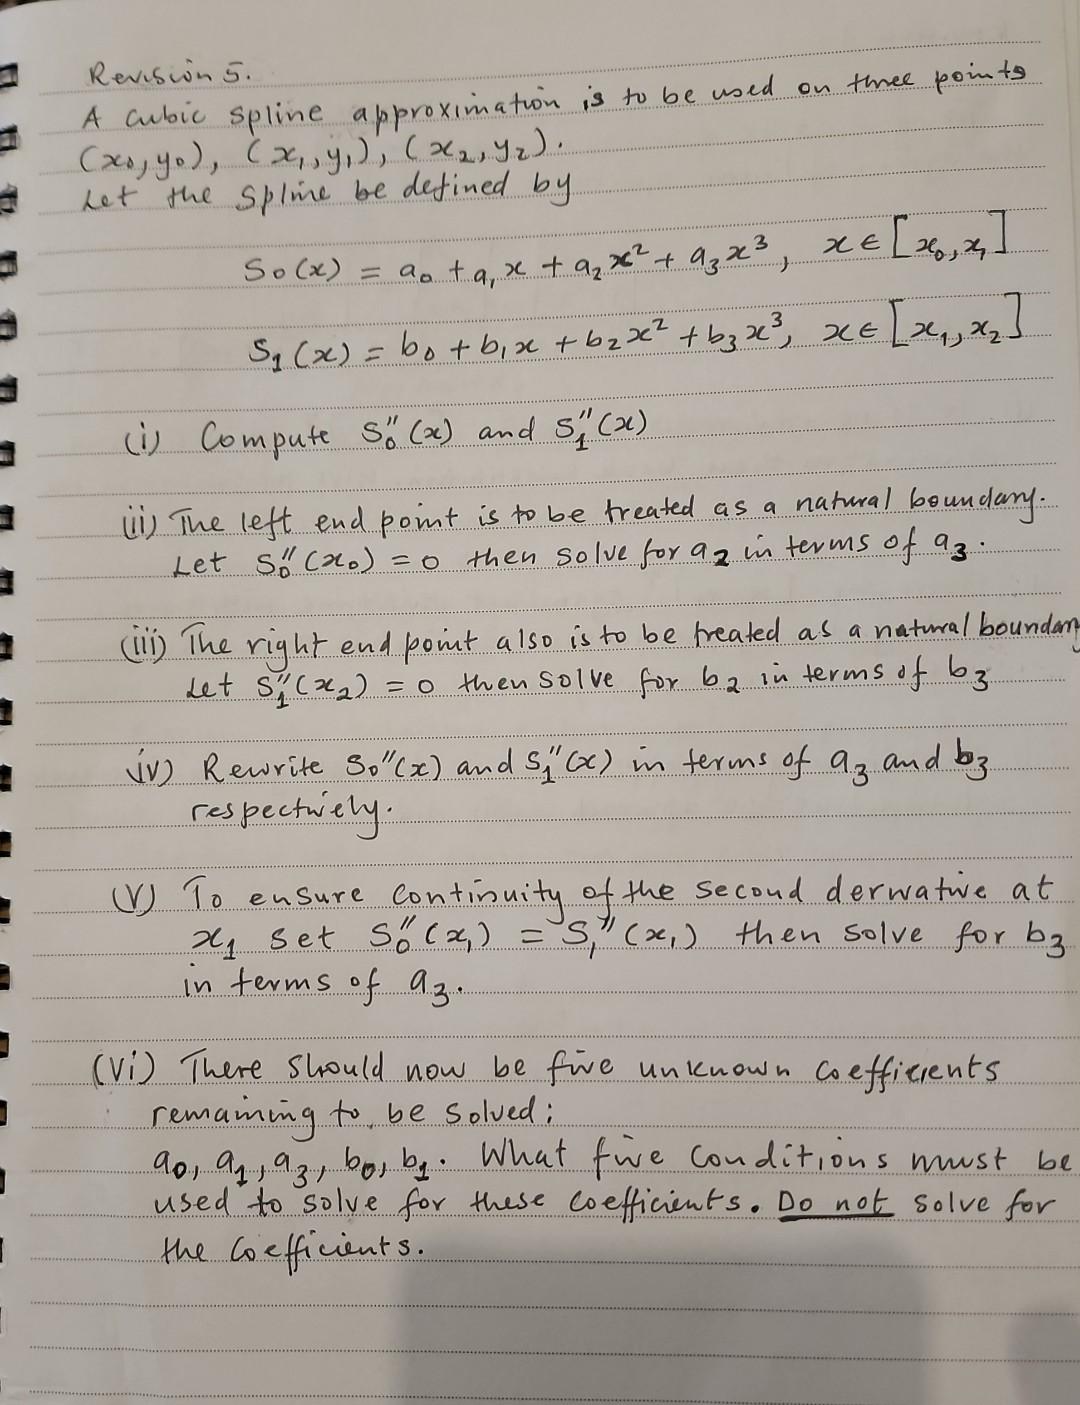 Revision 5.
A cubic spline approximation is to be used on three points
(x₀,y₀), (x₁,y₁), (x₂,y₂).
Let the spline be defined by
S₀(x) = a₀ + a₁x + a₂x² + a₃x³, x ∈ [x₀,x₁]
S₁(x) = b₀ + b₁x + b₂x² + b₃x³, x ∈ [x₁,x₂]
(i) Compute S₀″(x) and S₁″(x)
(ii) The left end point is to be treated as a natural boundary.
Let S₀″(x₀) = 0 then solve for a₂ in terms of a₃.
(iii) The right end point also is to be treated as a natural boundary
Let S₁″(x₂) = 0 then solve for b₂ in terms of b₃
iv) Rewrite S₀″(x) and S₁″(x) in terms of a₃ and b₃
respectively.
(V) To ensure continuity of the second derivative at
x₁ set S₀″(x₁) = S₁″(x₁) then solve for b₃
in terms of a₃.
(Vi) There should now be five unknown coefficients
remaining to be solved;
a₀, a₁, a₃, b₀, b₁. What five conditions must be
used to solve for these coefficients. Do not solve for
the coefficients.